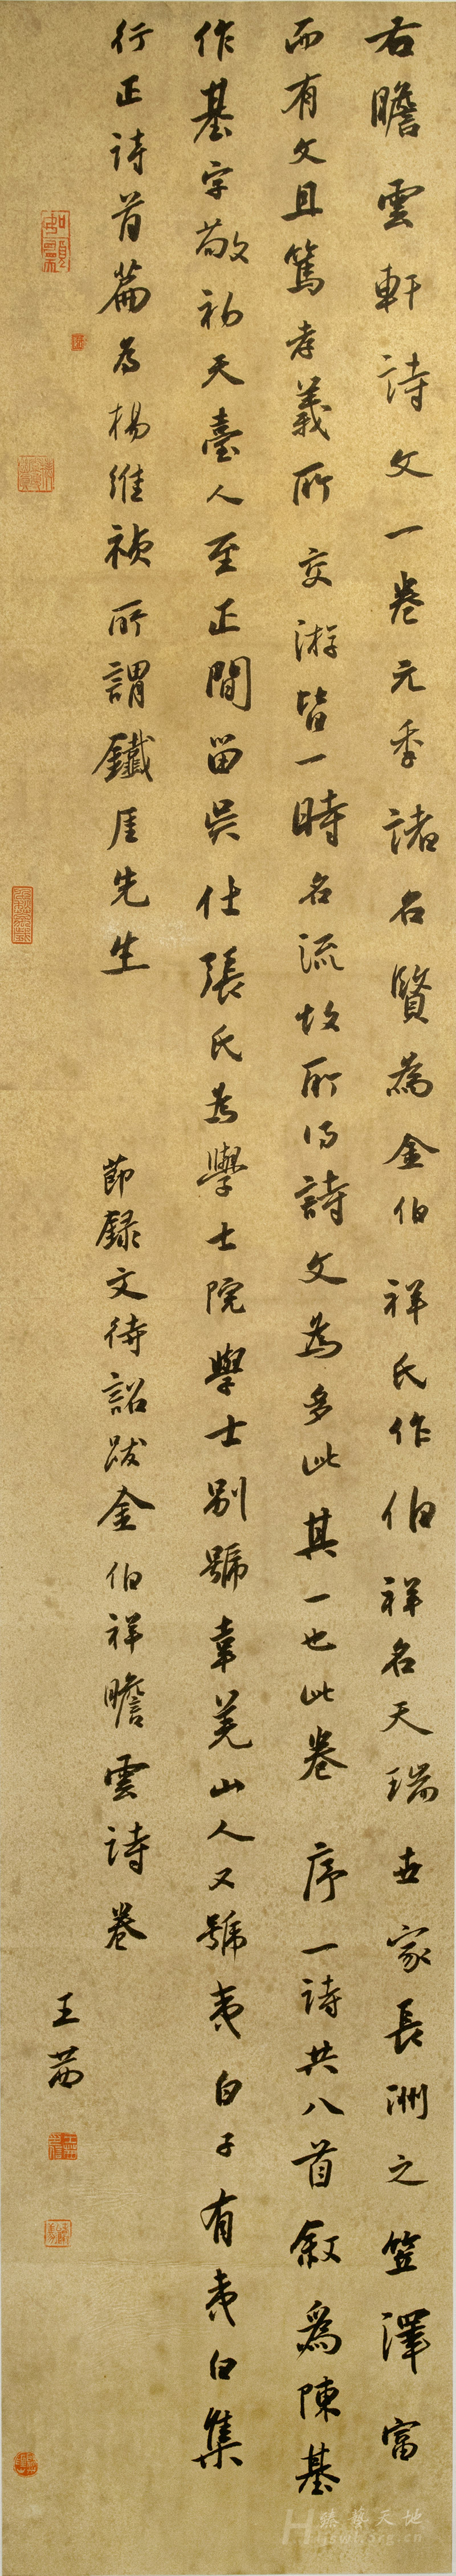 右瞻雲軒詩文一卷元季諸名賢為金伯祥氏作伯祥名天瑞世家長洲之笠澤富
而有文且篤孝義所交游皆一時名流故所得詩文為多此其一也此卷 序一詩共八首叙為陳基
作基字敬初天臺人至正間留吳仕張氏為學士院學士別號韋羌山人又號夷白子有夷白集
行正詩首篇為楊維禎所謂鐵厓先生
節錄文待詔跋金伯祥瞻雲詩卷
王
臻藝天地